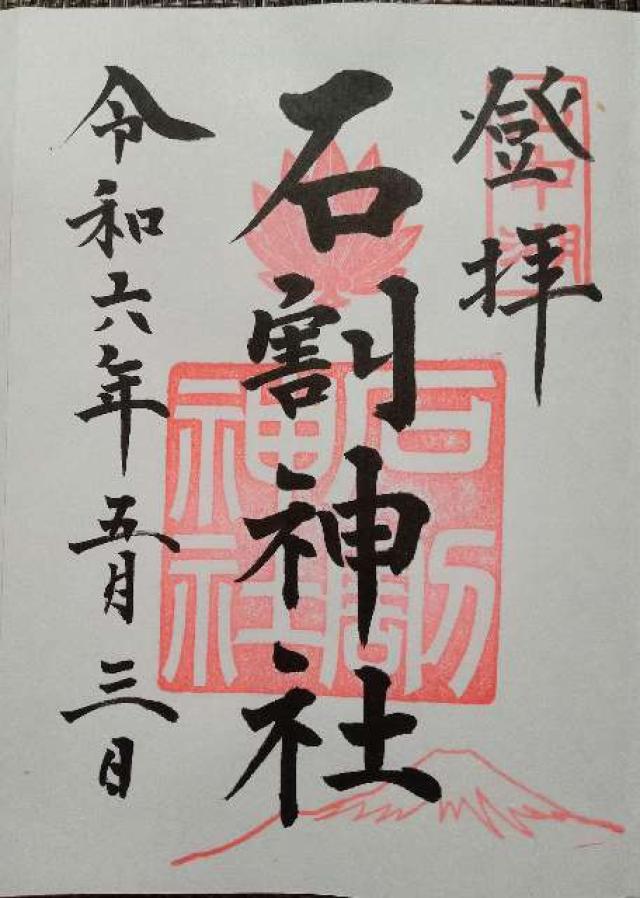 登拝
山中湖
石割神社
石割神社
令和六年五月三日